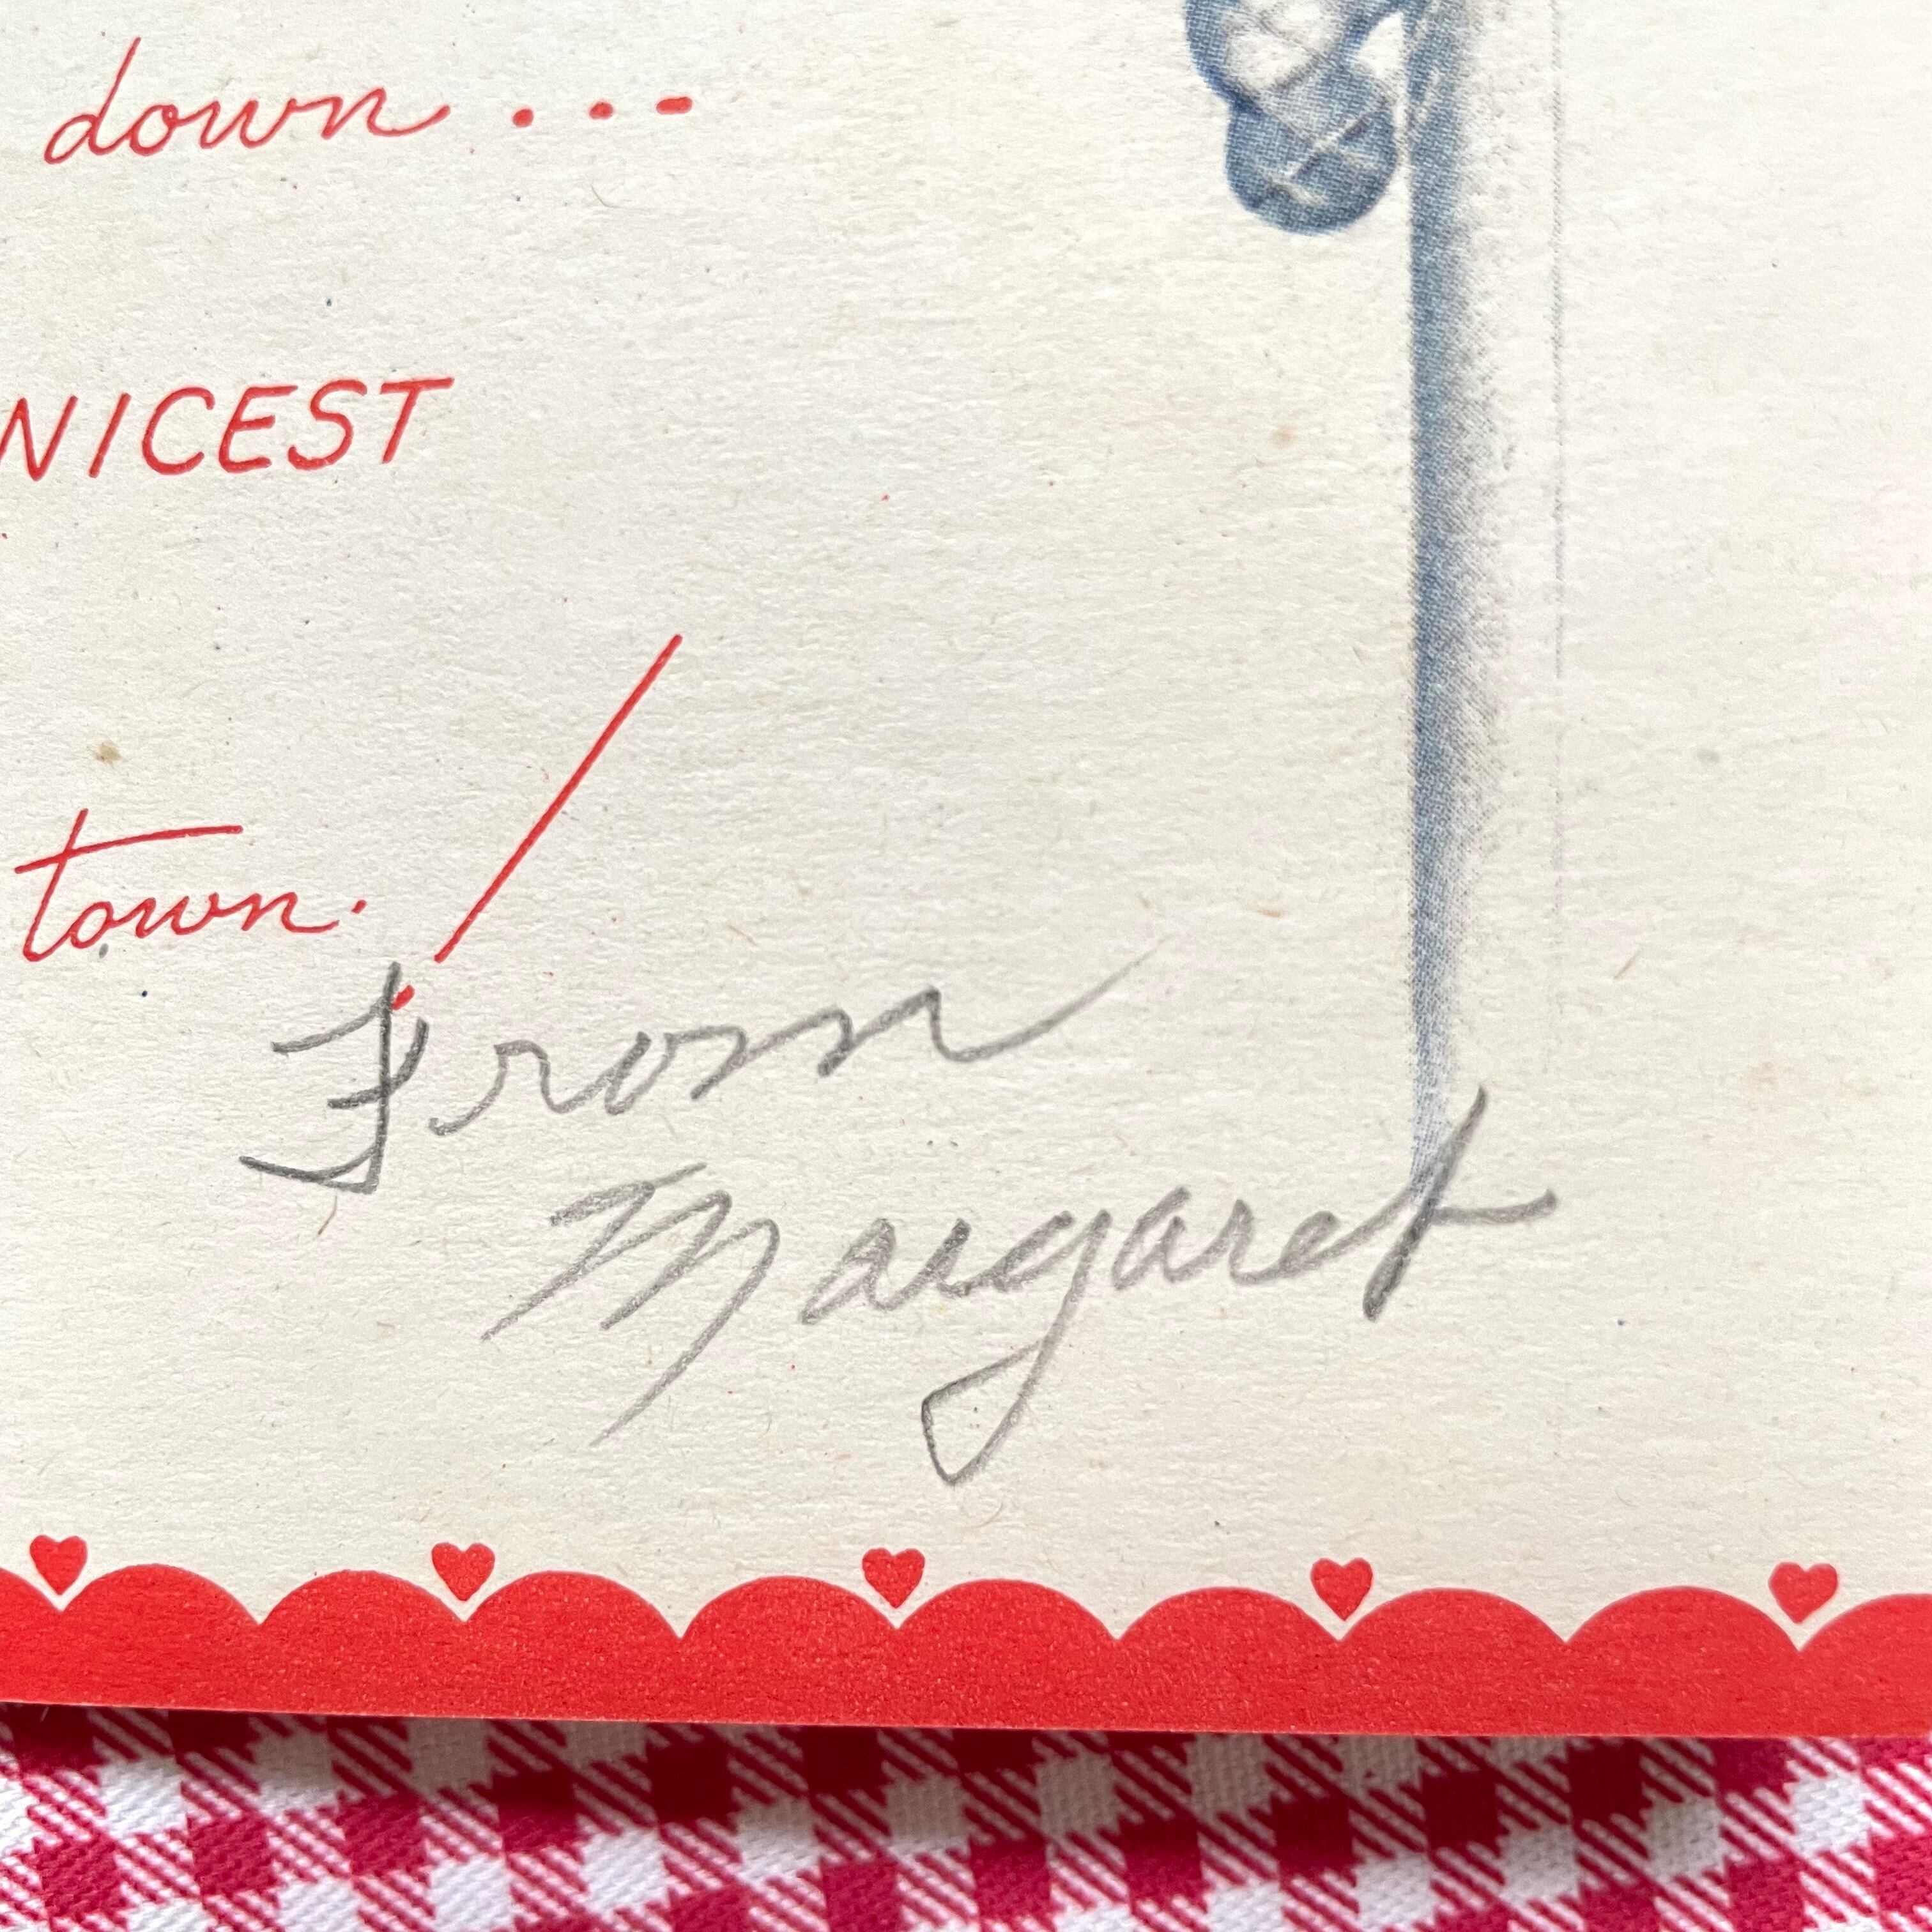 down ...
NICEST
town. !
From
Margaret